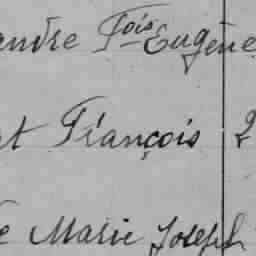 andre Fois Eugène
t François 2
e Marie Joseph